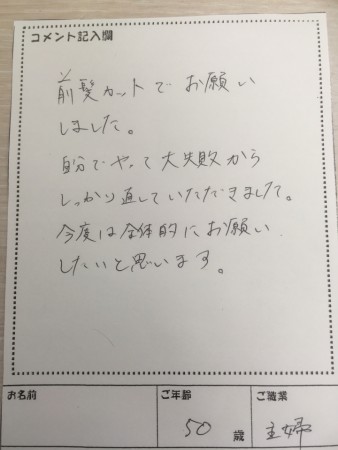 コメント記入欄
前髪カットでお願い
しました。
自分でやって大失敗から
しっかり直していただきました。
今度は全体的にお願い
したいと思います。
お名前
ご年齢
50 歳
ご職業
主婦